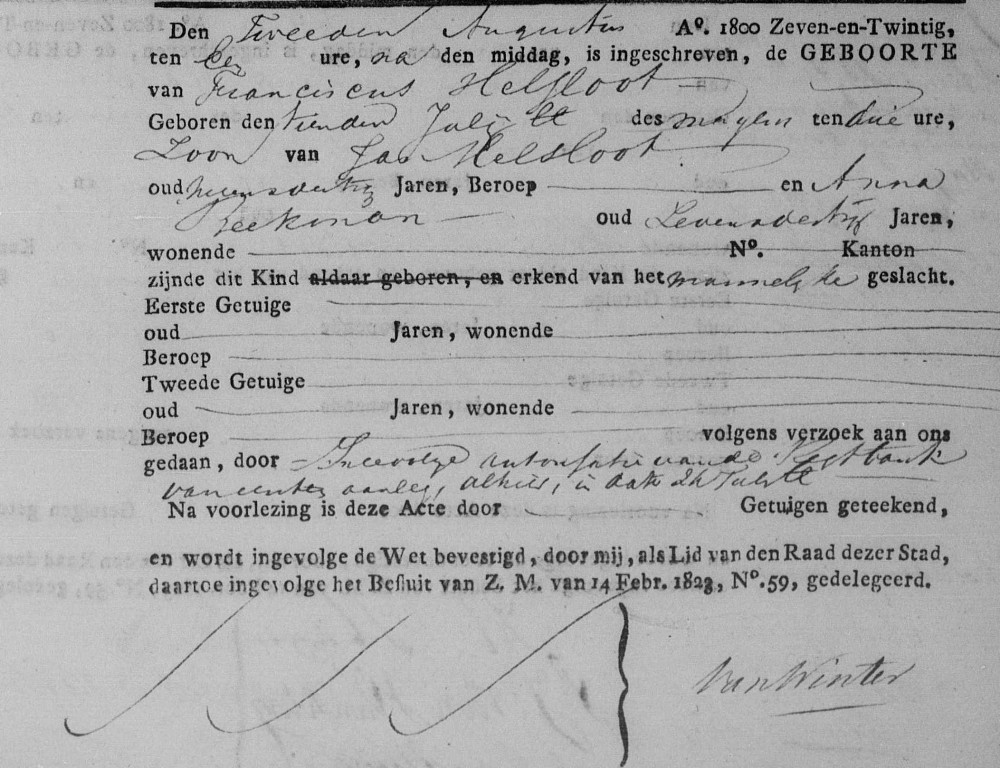 Den Tweeden Augustus Aº. 1800 Zeven-en-Twintig,
ten Een ure, na den middag, is ingeschreven, de GEBOORTE
van Franciscus Helsloot
Geboren den tienden Julij ll des morgens ten drie ure,
Zoon van Jan Helsloot
oud negenendertig Jaren, Beroep en Anna
Beekman oud zevenendertig Jaren,
wonende Nº. Kanton
zijnde dit Kind aldaar geboren, en erkend van het mannelyke geslacht.
Eerste Getuige
oud Jaren, wonende
Beroep
Tweede Getuige
oud Jaren, wonende
Beroep volgens verzoek aan ons
gedaan, door Ingevolge autorisatie van de Regtbank
van eersten aanleg, alhier, in dato 24 Julij ll
Na voorlezing is deze Acte door Getuigen geteekend,
en wordt ingevolge de Wet bevestigd, door mij, als Lid van den Raad dezer Stad,
daartoe ingevolge het Besluit van Z. M. van 14 Febr. 1823, Nº. 59, gedelegeerd.
Van Winter